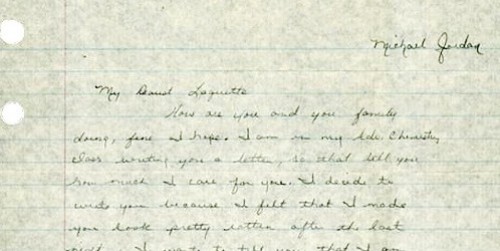 Michael Jordan
My Dearest Laquette
How are you and you family
doing, fine I hope. I am in my Adv. Chemistry
class writing you a letter, so that tell you
how much I care for you. I decide to
write you because I felt that I made
you look pretty rotten after the last
I want to tell you that I am